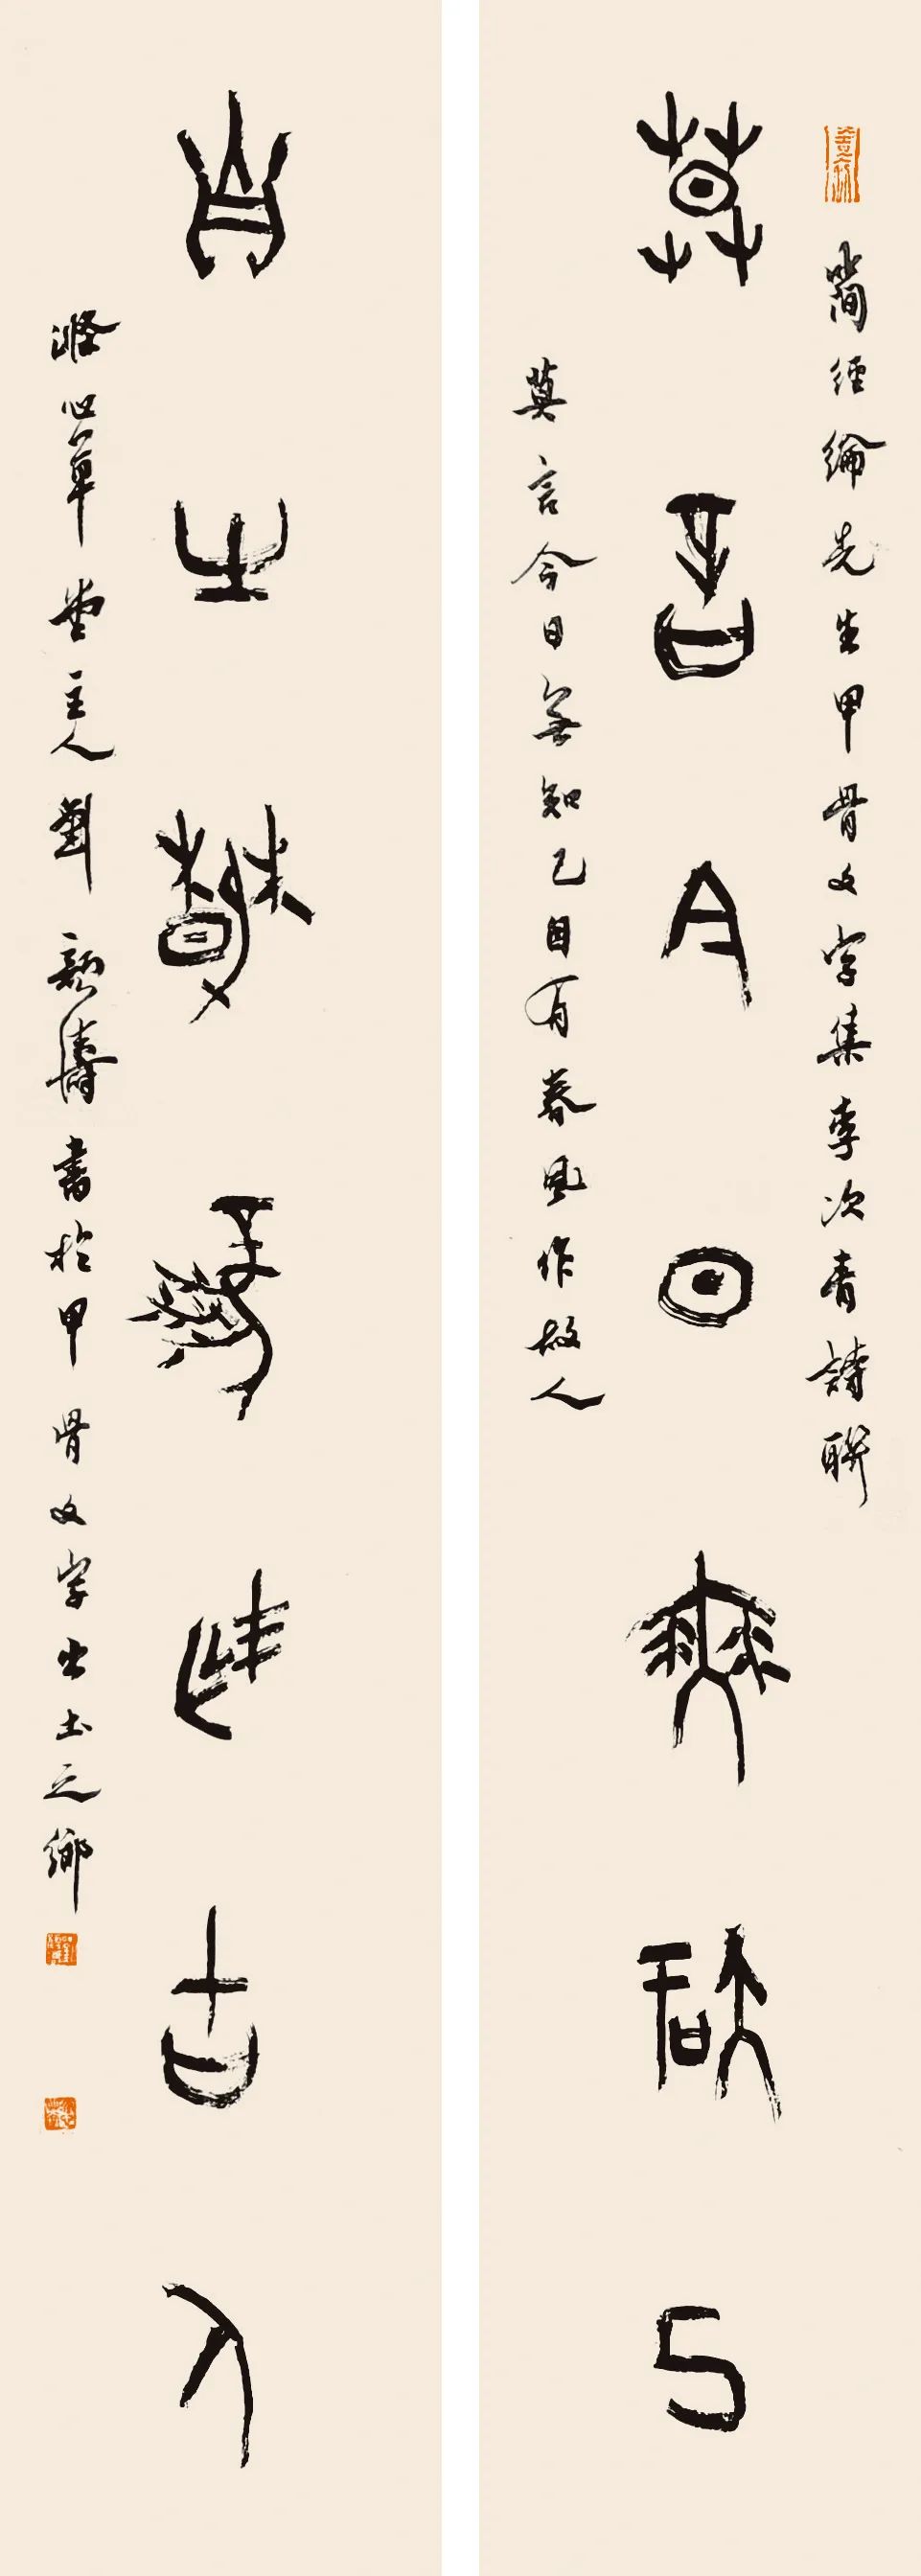 簡經綸先生甲骨文字集李次青詩聯
莫言今日無知己
莫言今日無知己自有春風作故人
自㞢春風作古人
滌心草堂主人劉顏濤書於甲骨文字出土之鄉